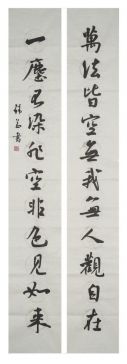 萬法皆空無我無人觀自在
一塵不染非空非色見如来